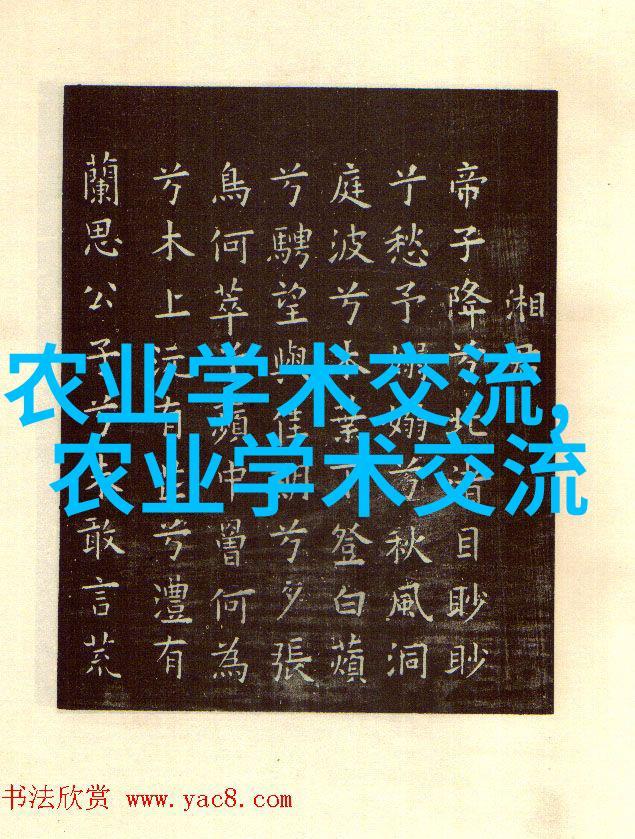 湘
帝子降兮北渚目眇眇
兮愁予嫋嫋兮秋風洞
庭波兮木葉下登白蘋
兮騁望與佳期兮夕張
鳥何萃兮蘋中罾何為
兮木上沅有芷兮澧有
蘭思公子兮未敢言荒
农业学术交流,
农业学术交流
书法欣赏 www.yac8.com